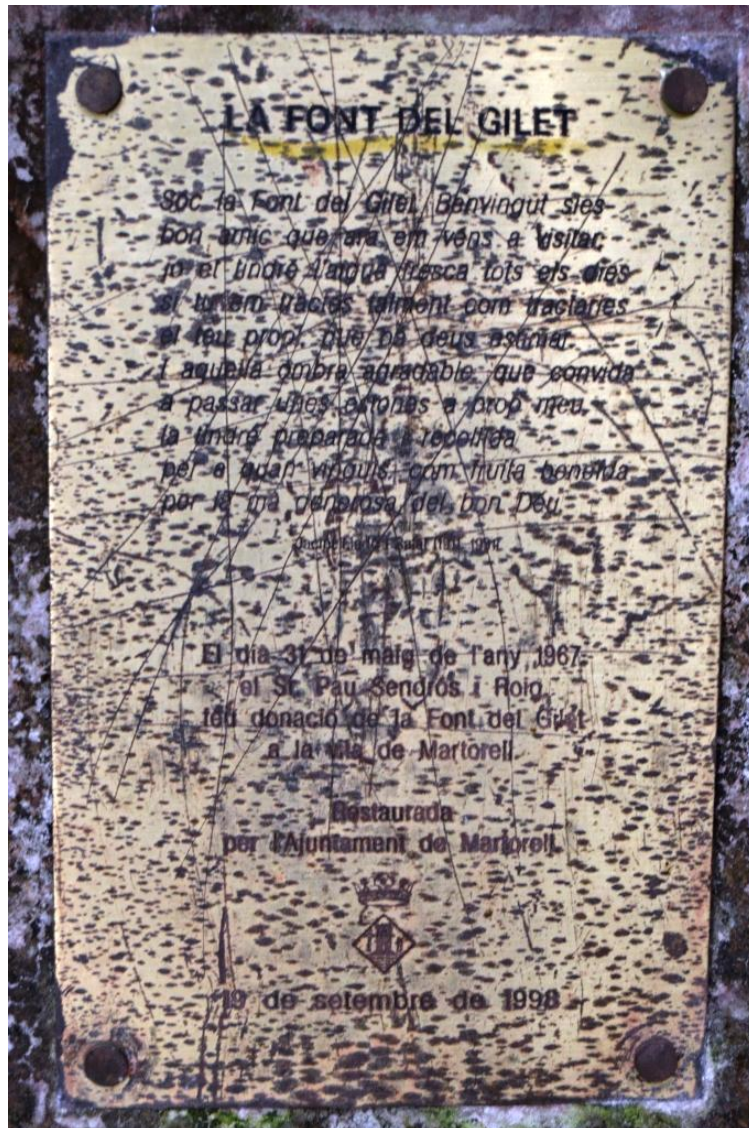 LA FONT DEL GILET
Sóc la Font del Gilet. Benvingut sies
bon amic que ara em véns a visitar;
jo et tindré l'aigua fresca tots els dies
si tu em tractes talment com tractaries
el teu propi, que bé deus estimar.
I aquella ombra agradable, que convida
a passar unes estones a prop meu,
la tindré preparada i recollida
per a quan vinguis, com fruita beneïda
per la mà generosa del bon Déu.
El dia 31 de maig de l'any 1967
el Sr. Pau Sendrós i Roig
feu donació de la Font del Gilet
a la vila de Martorell
Restaurada
per l'Ajuntament de Martorell
19 de setembre de 1998